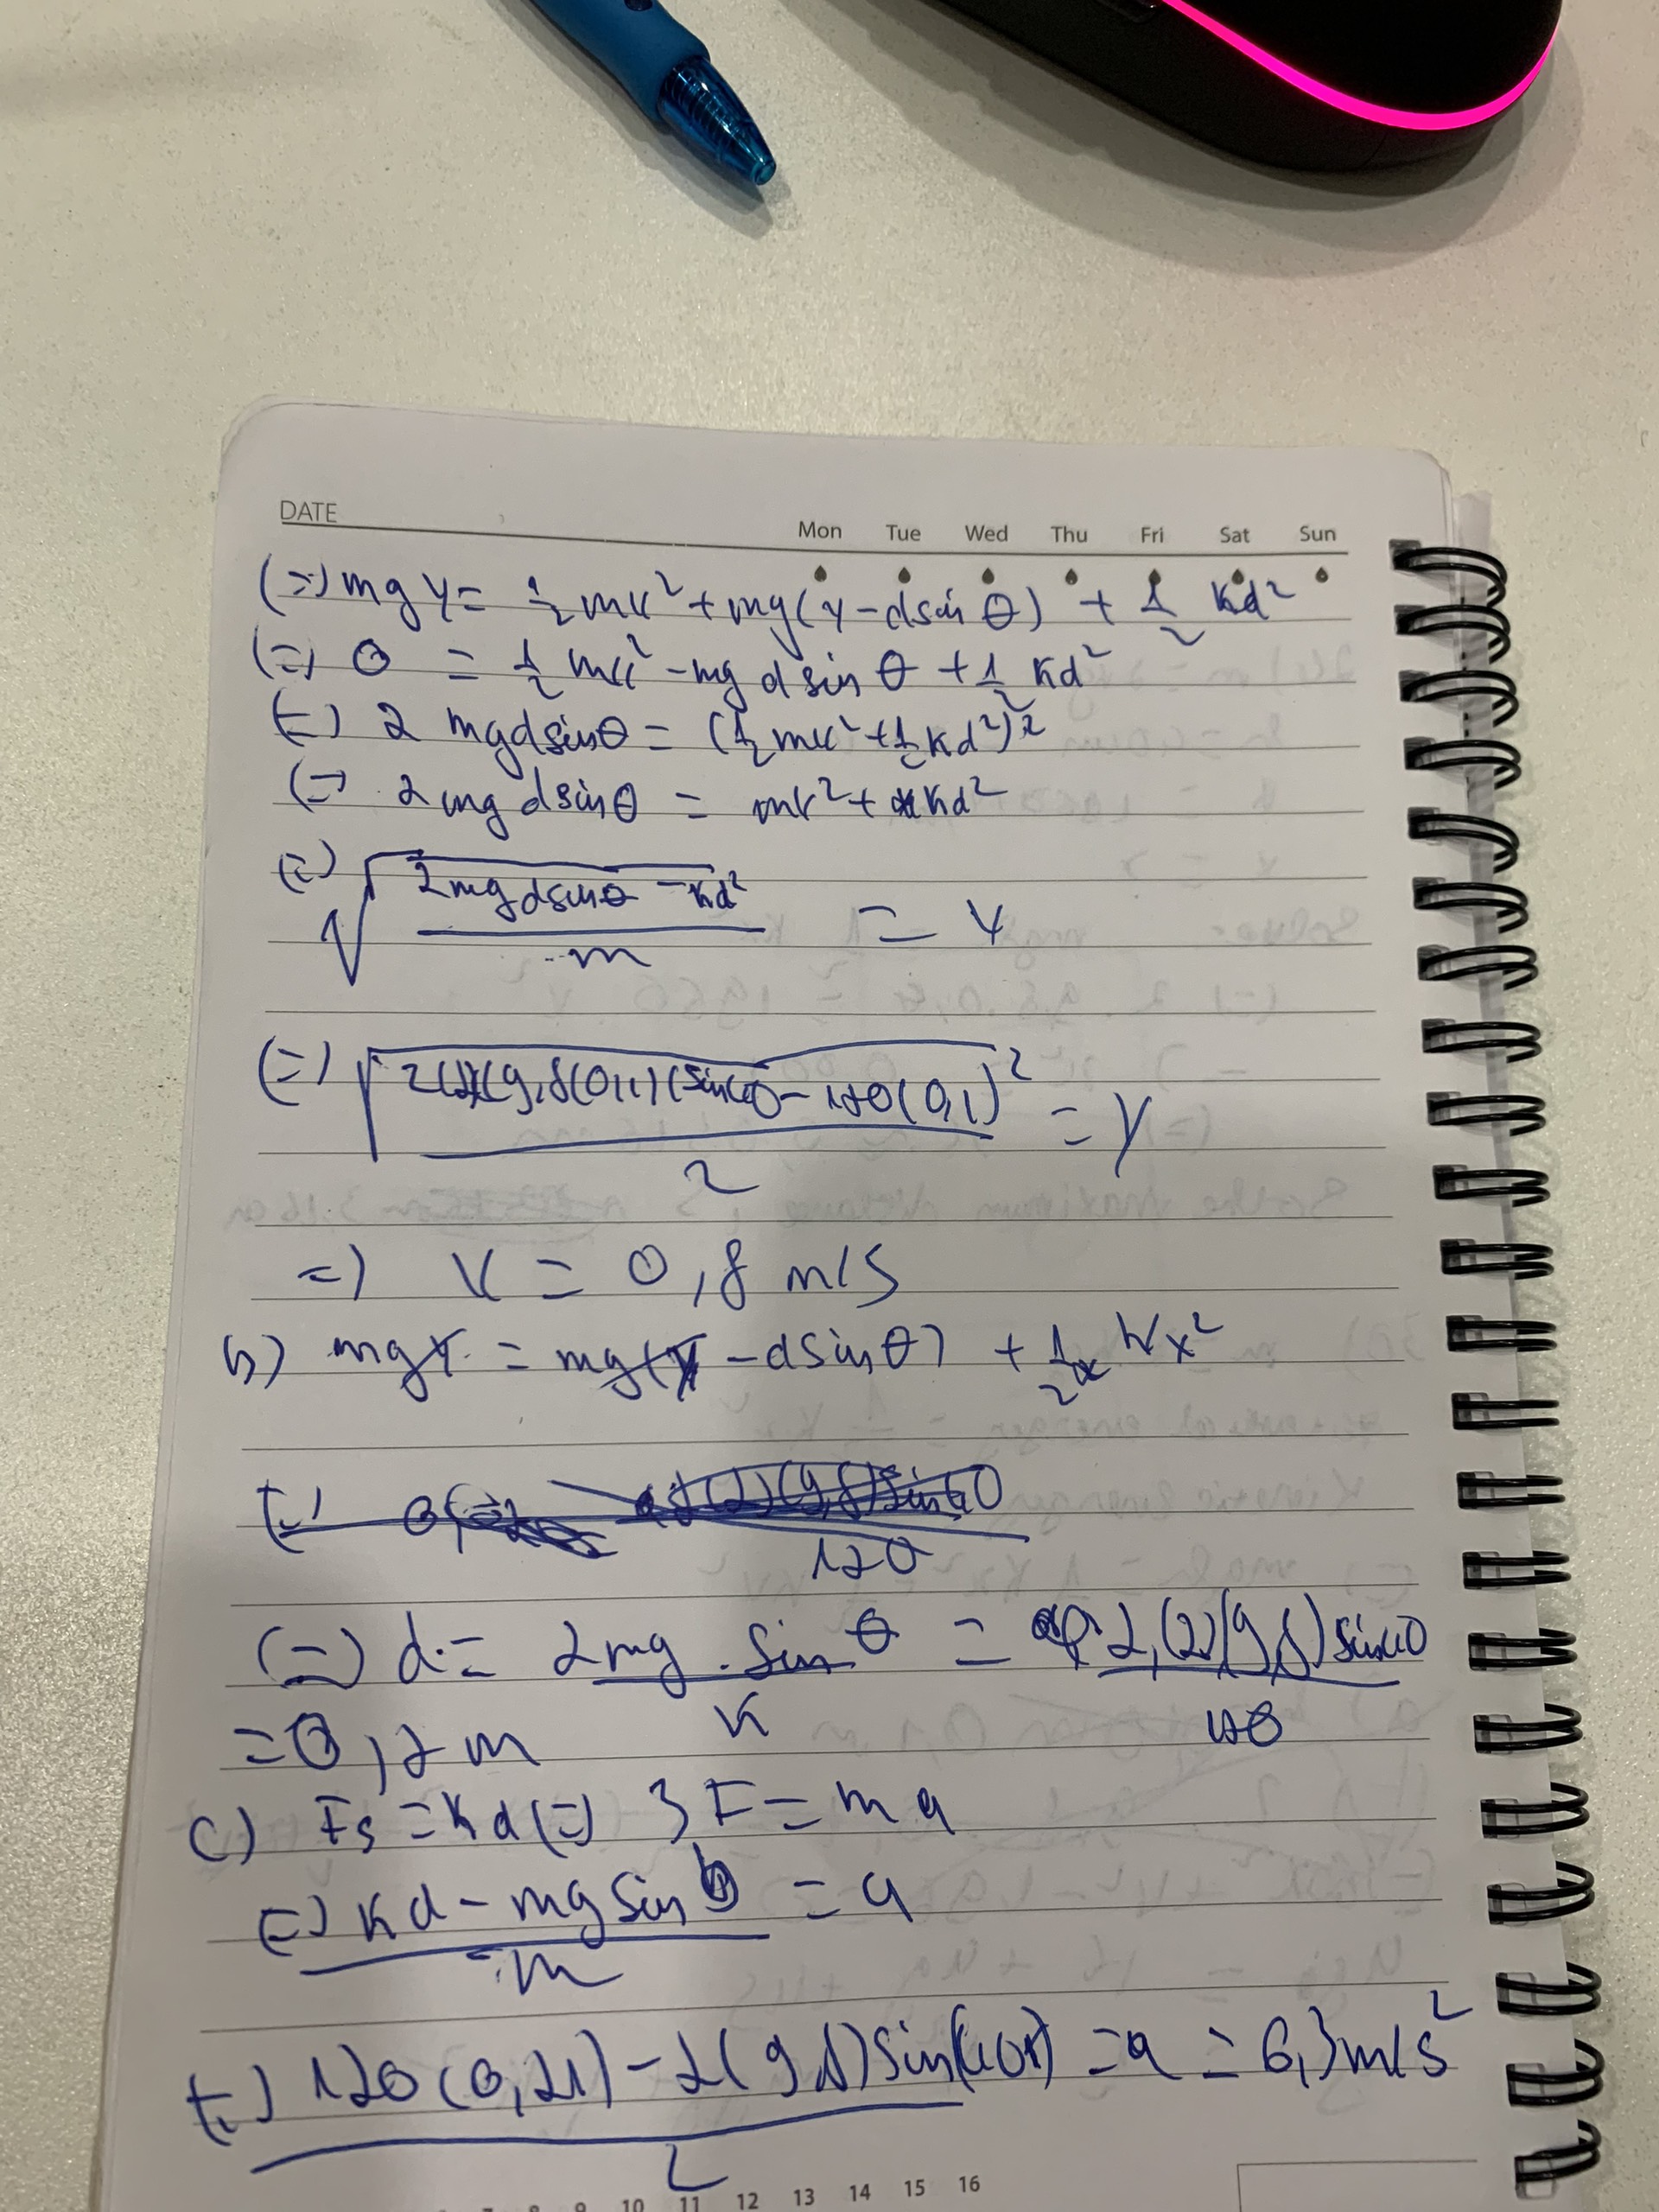 DATE
Mon Tue Wed Thu Fri Sat Sun
(=) mg y = 1/2 mv² + mg(y - dsin θ) + 1/2 kd²
(=) 0 = 1/2 mv² - mg d sin θ + 1/2 kd²
(=) 2 mgdsinθ = (1/2 mv² + 1/2 kd²)2
(=) 2mg dsinθ = mv² + kd²
(=) √((2mgdsinθ - kd²)/m) = v
(=) √((2(2)(9,8(0,1)(sin40 - 120(0,1)²)/2) = v
=) v = 0,8 m/s
b) mgy = mg(y - dsinθ) + 1/2 kx²
120
(=) d = 2mg . sin θ / k = 2,(2)(9,8)sin40 / 120
= 0,2 m
c) Fs = kd (=) F = ma
(=) (kd - mg sin θ)/m = a
(=) (120(0,21) - 2(9,8)sin(40))/2 = a = 6,3 m/s²
10 11 12 13 14 15 16